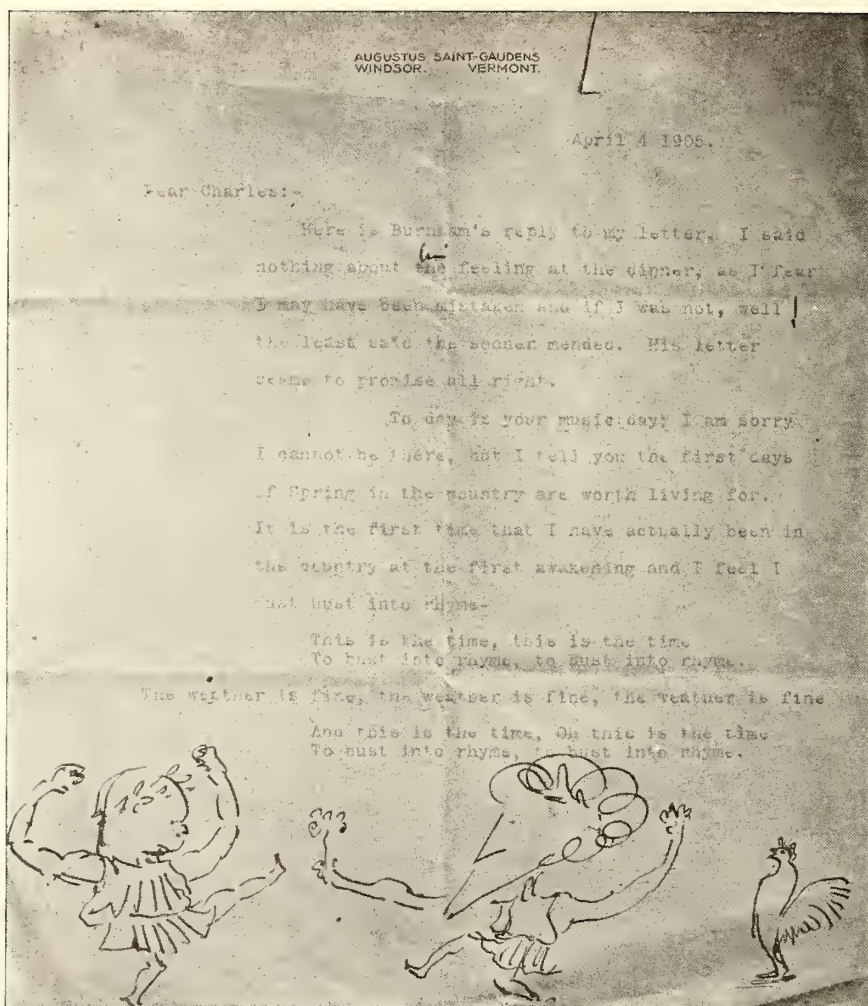 AUGUSTUS SAINT-GAUDENS
WINDSOR. VERMONT.
April 4 1905.
Dear Charles:-
Here is Burnham's reply to my letter. I said
nothing about the feeling at the dinner, as I fear
I may have been mistaken and if I was not, well!
the least said the sooner mended. His letter
seems to promise all right.
To day is your music day; I am sorry
I cannot be there, but I tell you the first days
of Spring in the country are worth living for.
It is the first time that I have actually been in
the country at the first awakening and I feel I
must bust into rhyme-
This is the time, this is the time
To bust into rhyme, to bust into rhyme.
The weather is fine, the weather is fine, the weather is fine
And this is the time, Oh this is the time
To bust into rhyme, to bust into rhyme.